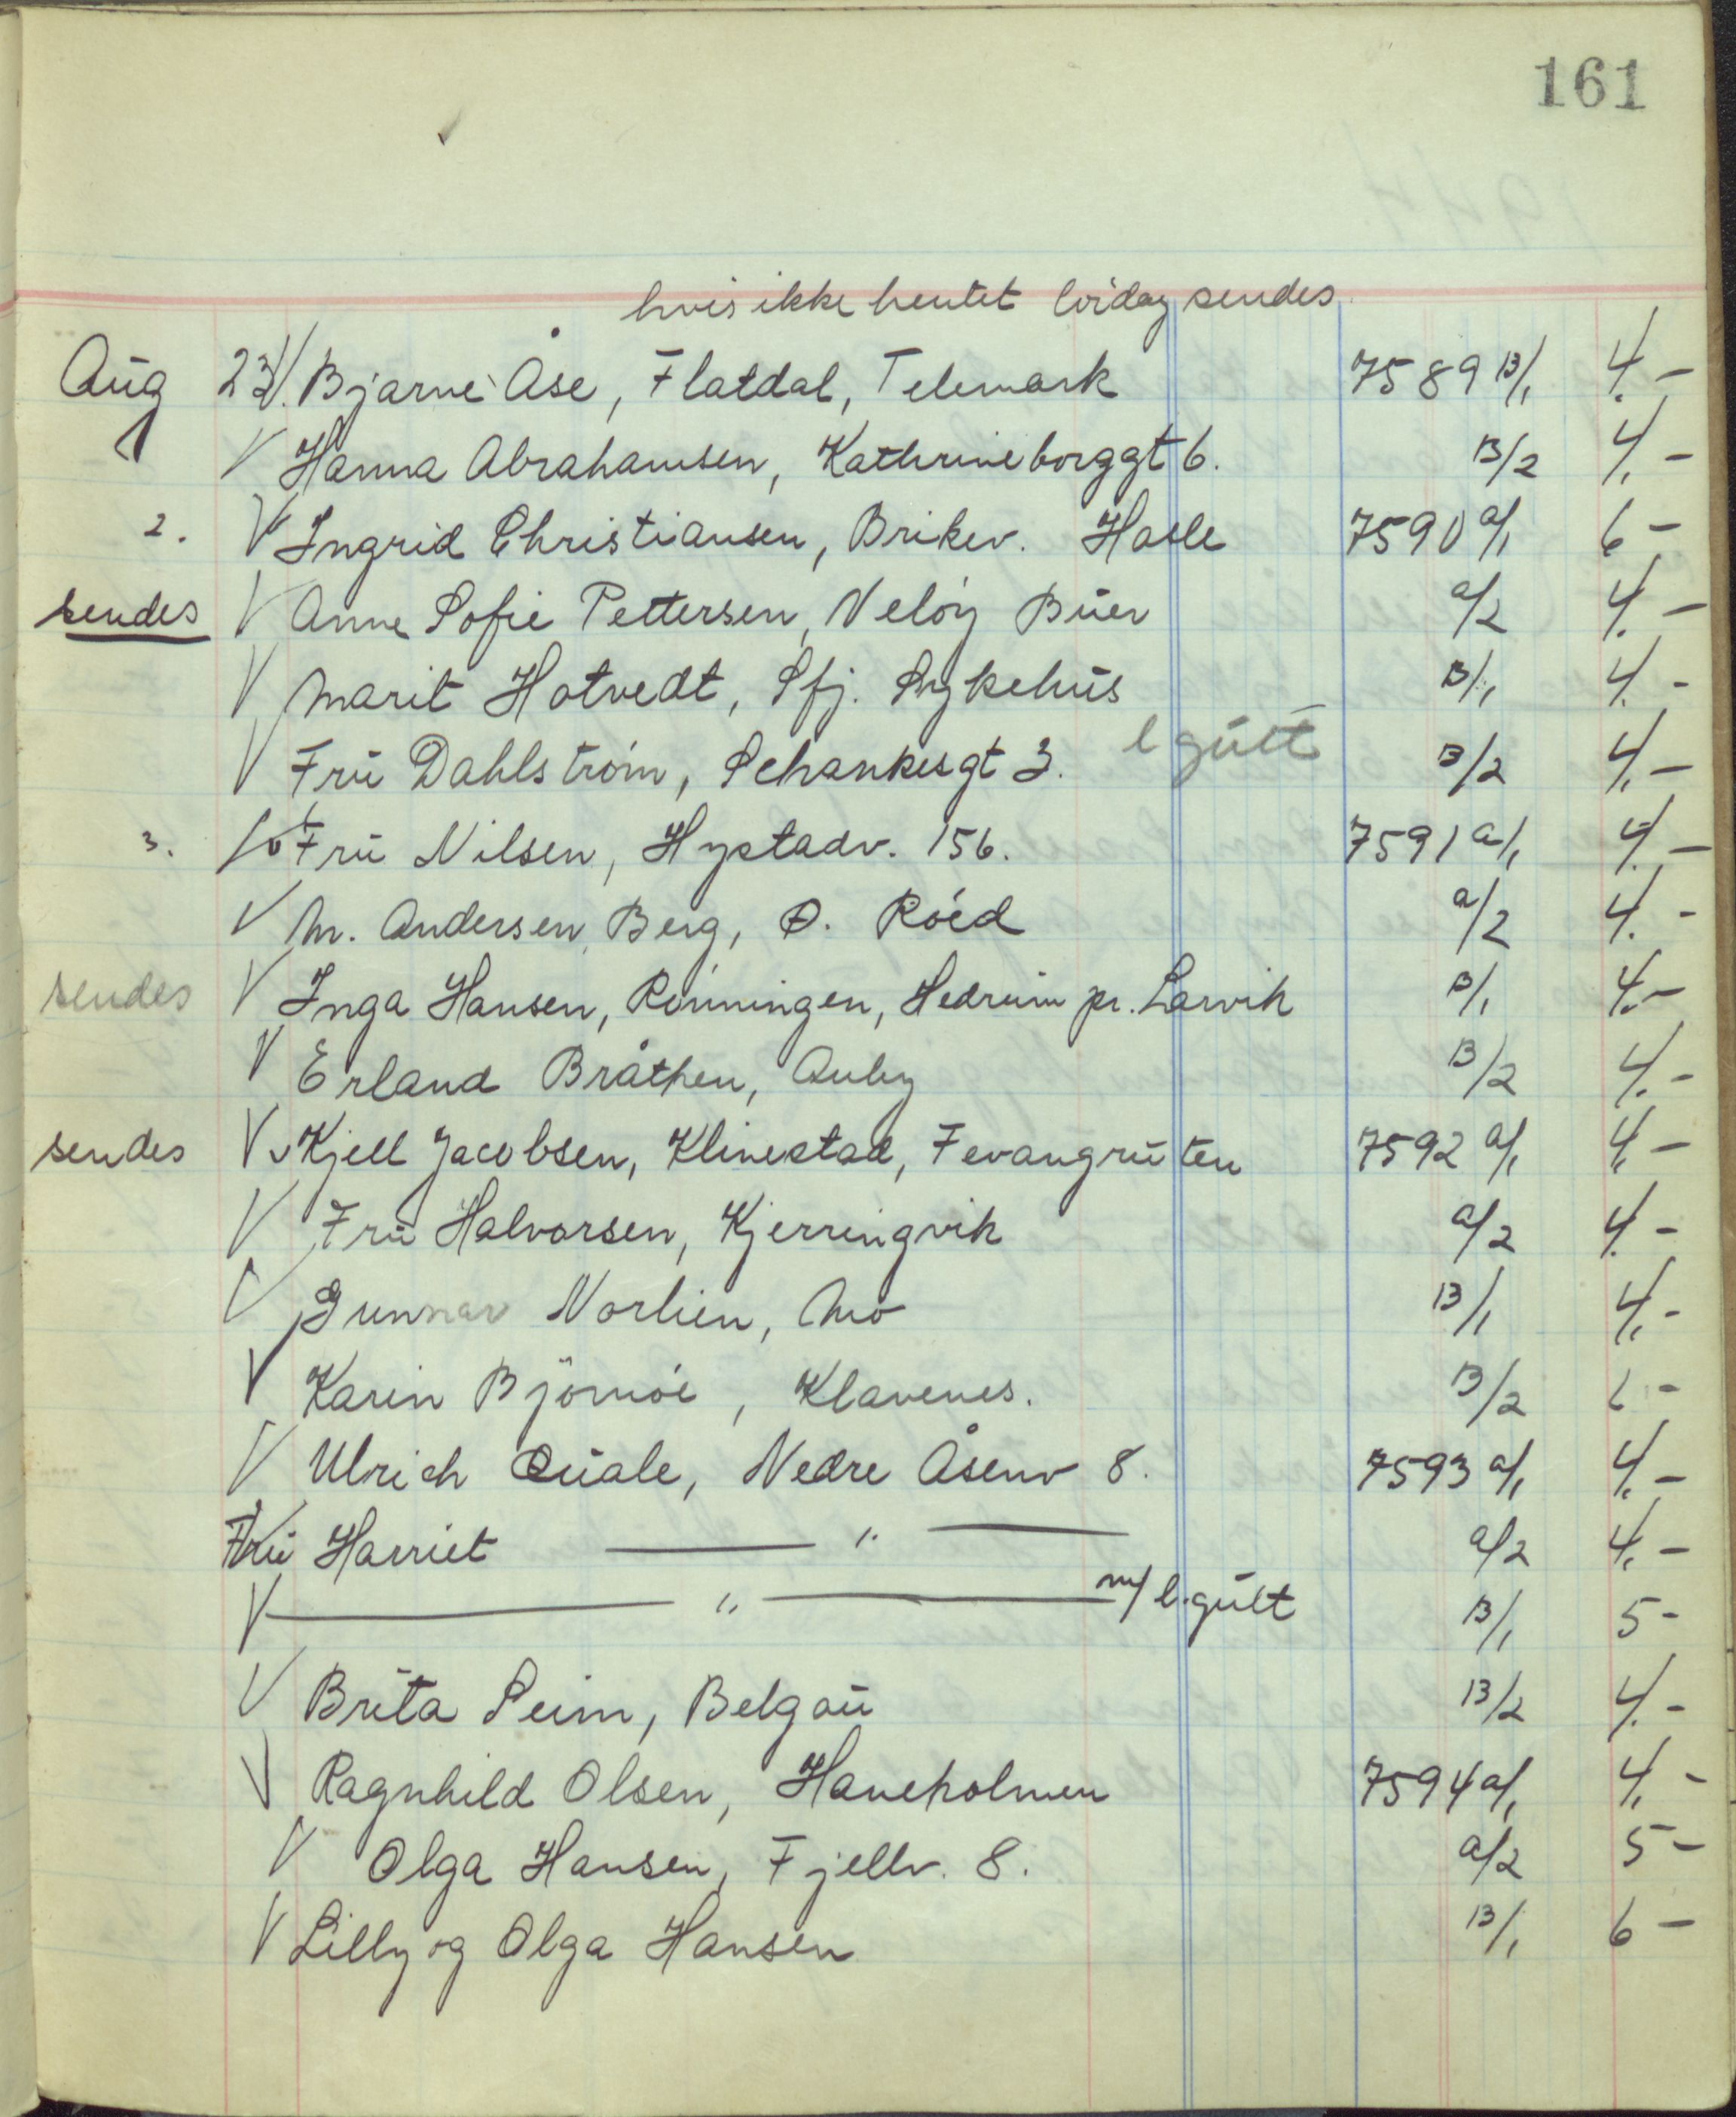 161
hvis ikke hentet lördag sendes
Aug 23 V. Bjarne Åse, Flatdal, Telemark 7589 B/1 4.-
V Hanna Abrahamsen, Kathrineborggt 6. B/2 4.-
2. V Ingrid Christiansen, Brikev. Hasle 7590 a/1 6 -
sendes V Anne Sofie Pettersen, Velöy Buer a/2 4.-
V Marit Hotvedt, Sfj. Sykehus B/1 4.-
V Fru Dahlström, Schankesgt 3. l gult B/2 4.-
3. V Fru Nilsen, Hystadv. 156. 7591 a/1 4.-
V M. Andersen, Berg, Ø. Röed a/2 4.-
sendes V Inga Hansen, Rönningen, Hedrum pr. Larvik B/1 4.-
V Erland Bråthen, Auby B/2 4.-
sendes V Kjell Jacobsen, Klinestad, Fevangruten 7592 a/1 4.-
V Fru Halvorsen, Kjerringvik a/2 4.-
V Gunnar Norlien, Mo B/1 4.-
V Karin Björnöe, Klavenes. B/2 -
V Ulrich Quale, Nedre Åsenv 8. 7593 a/1 4.-
Fru Harriet — " — a/2 4.-
V — " — m/ l.gult B/1 5 -
V Brita Seim, Belgau B/2 4.-
V Ragnhild Olsen, Haneholmen 7594 a/1 4.-
V Olga Hansen, Fjellv. 8. a/2 5 -
V Lilly og Olga Hansen B/1 6 -